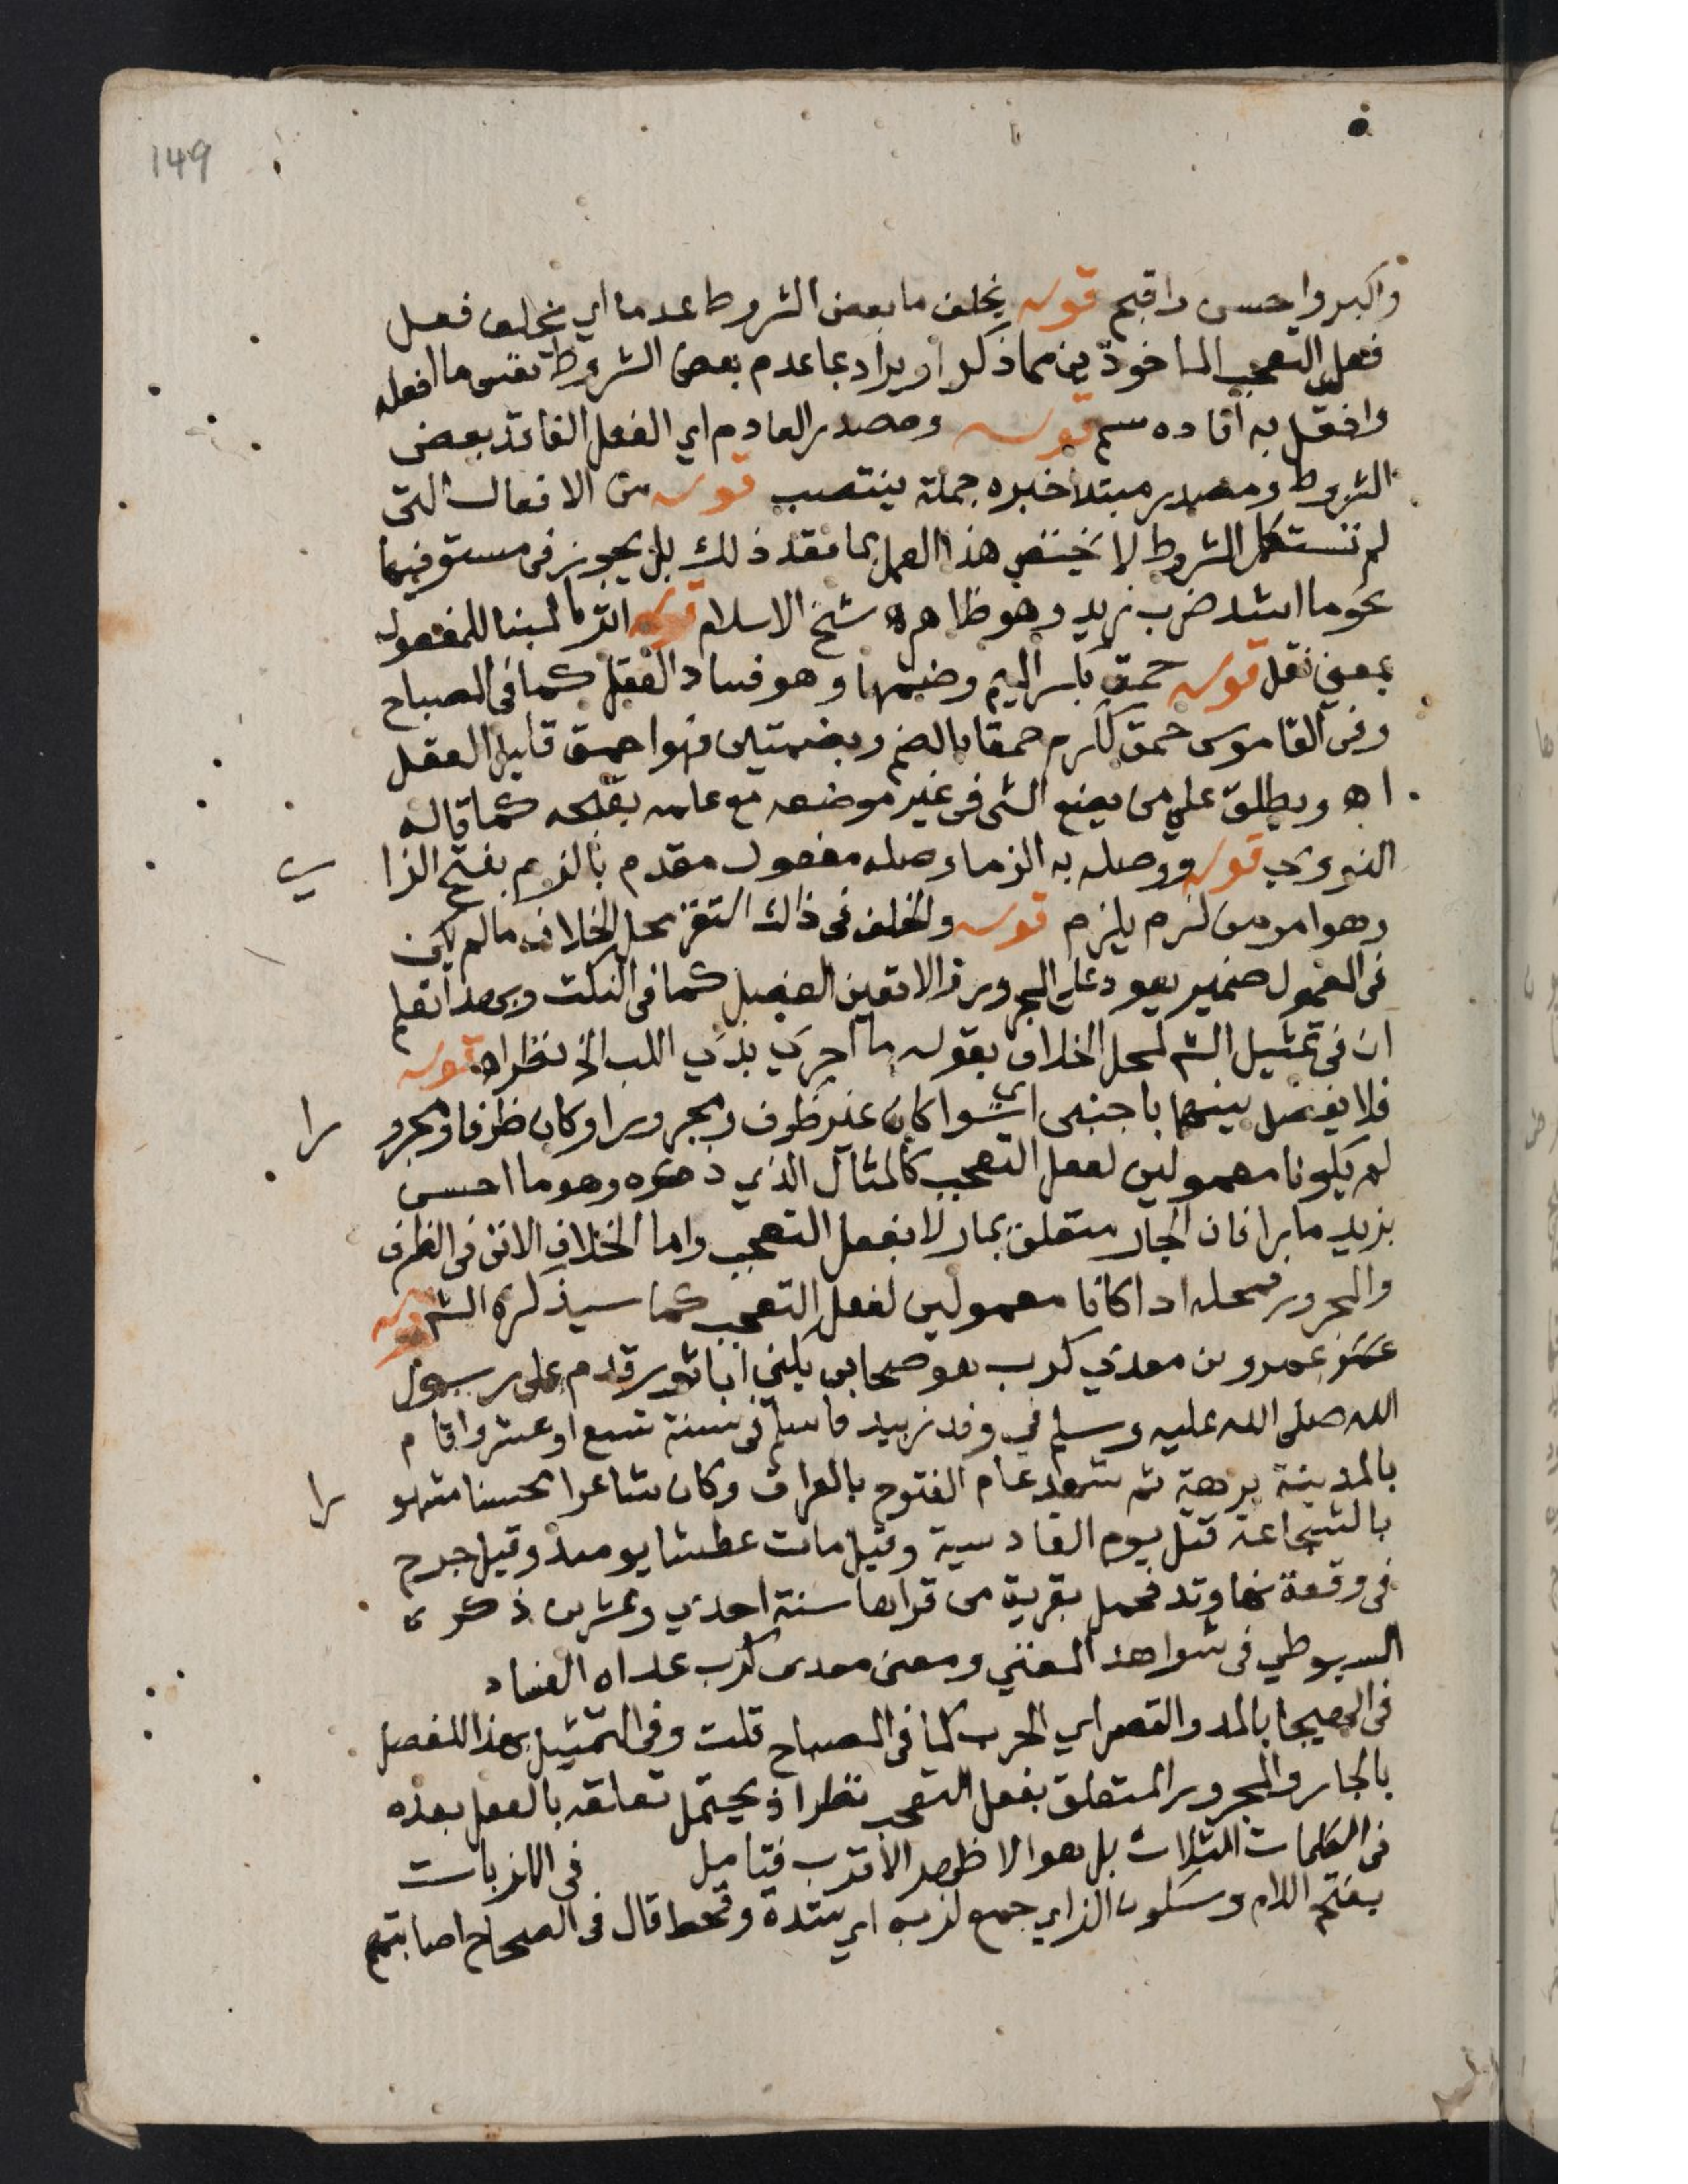 149
واكبر واحسن واقبح قوله يخلف ما بعض الشروط عدما اي يخلف فعل
فعل التعجب الماخوذين مما ذكر او يراد بما عدم بعض الشروط نفس ما افعله
وافعل به افاده سم قوله ومصدر العادم اي الفعل الفاقد بعض
الشروط ومصدر مبتدا خبره جملة ينتصب قوله من الافعال التي
لم تستكمل الشروط لا يختص هذا العمل بما فقد ذلك بل يجوز في مستوفيها
نحو ما اشد ضرب زيد وهو ظاهر اه شيخ الاسلام قوله المبنا للمفعول
بمعني نقل قوله حمق بكسر الميم وضمها وهو فساد العقل كما في المصباح
وفي القاموس حمق ككرم حمقا بالضم وبضمتين فهو احمق قليل العقل
اه ويطلق علي من يضع الشي في غير موضعه مع علمه بقبحه كما قاله
النووي قوله ووصله به الزما وصله مفعول مقدم بالزم بفتح الزا
ي
وهو امر من لزم يلزم قوله والخلف في ذاك استقر محل الخلاف ما لم يكن
في المعمول ضمير يعود علي المجرور والا تعين الفصل كما في النكت وبهذا تعلم
ان في تمثيل الش لمحل الخلاف بقوله ما احري بذي اللب الخ نظرا اه قوله
فلا يفصل بينهما باجنبي اي سوا كان غير ظرف ومجرور او كان ظرفا ومجرو
را
لم يكونا معمولين لفعل التعجب كالمثال الذي ذكره وهو ما احسن
بزيد مارا فان الجار متعلق بمار لا بفعل التعجب واما الخلاف الاتي في الظرف
والمجرور فمحله اذا كانا معمولين لفعل التعجب كما سيذكره الش قوله
عمرو بن معدي كرب هو صحابي يكني ابا ثور قدم على رسول
الله صلى الله عليه وسلم في وفد زبيد فاسلم في سنة تسع او عشر واقام
بالمدينة برهة ثم شهد عام الفتوح بالعراق وكان شاعرا محسنا مشهو
را
بالشجاعة قتل يوم القادسية وقيل مات عطشا يومئذ وقيل جرح
في وقعة نهاوند فحمل بقرية من قراها سنة احدي وعشرين ذكره
السيوطي في شواهد المغني ومعنى معدي كرب عداه الفساد
في الهيجا بالمد والقصر اي الحرب كما في المصباح قلت وفي التمثيل بهذا للفصل
بالجار والمجرور المتعلق بفعل التعجب نظر اذ يحتمل تعلقه بالفعل بعده
في الكلمات الثلاث بل هو الاظهر الاقرب فتامل في اللزبات
بفتح اللام وسكون الزاي جمع لزبه اي شدة وقحط قال في الصحاح اصابتهم